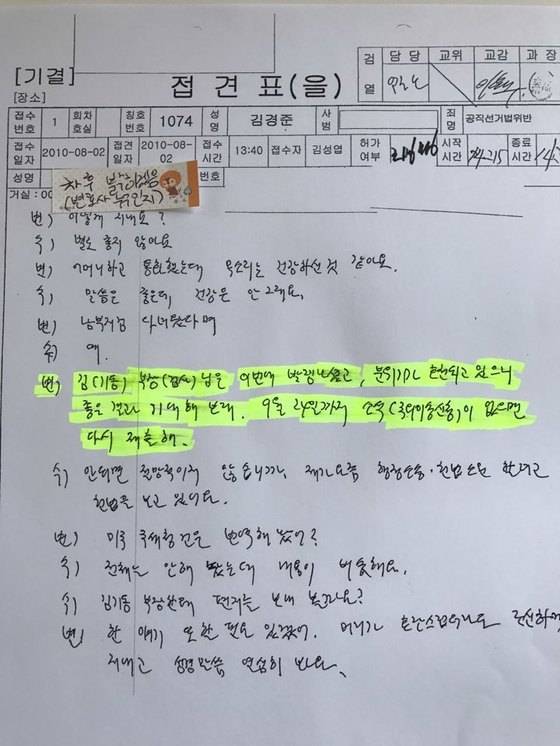 [기결]
[장소]
접 견 표(을)
검열 담당 교위 교감 과장
접수번호 1 회차호실 칭호번호 1074 성명 김경준 사범 죄명 공직선거법위반
접수일자 2010-08-02 접견일자 2010-08-02 접수시간 13:40 접수자 김성엽 허가여부 시작시간 종료시간
성명 번호
차후
(변호사
거실 : 00
변) 어떻게 지내요?
수) 별로 좋지 않아요
변) 어머니하고 통화했는데 목소리는 건강하신 것 같아요.
수) 말씀은 좋은데 건강은 안 그래요.
변) 남부지검 다녀왔다며
수) 예.
변) 김(기동) 부장(검사)님은 이번에 발령나셨고, 분위기가 호전되고 있으니
좋은 결과 기대해 보래. 9월 24일까지 소식(국외이송신청)이 없으면
다시 제출해.
수) 안되면 절망적이지 않습니까, 제가요즘 행정소송·헌법소원 한다고
헌법을 보고 있어요.
변) 미국 국새형건은 번역해 놨어?
수) 전체는 안해 봤는데 내용이 비슷해요.
수) 김기동 부장한테 편지는 보내 볼까요?
변) 한 얘기 또한 필요 있겠어. 머리가 혼란스럽더라도 근신하며
지내고 성경말씀 열심히 봐요.